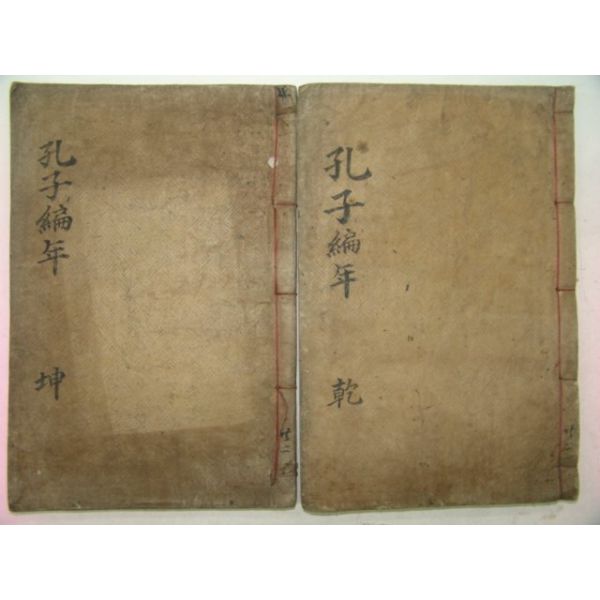 孔子編年
乾
孔子編年
坤